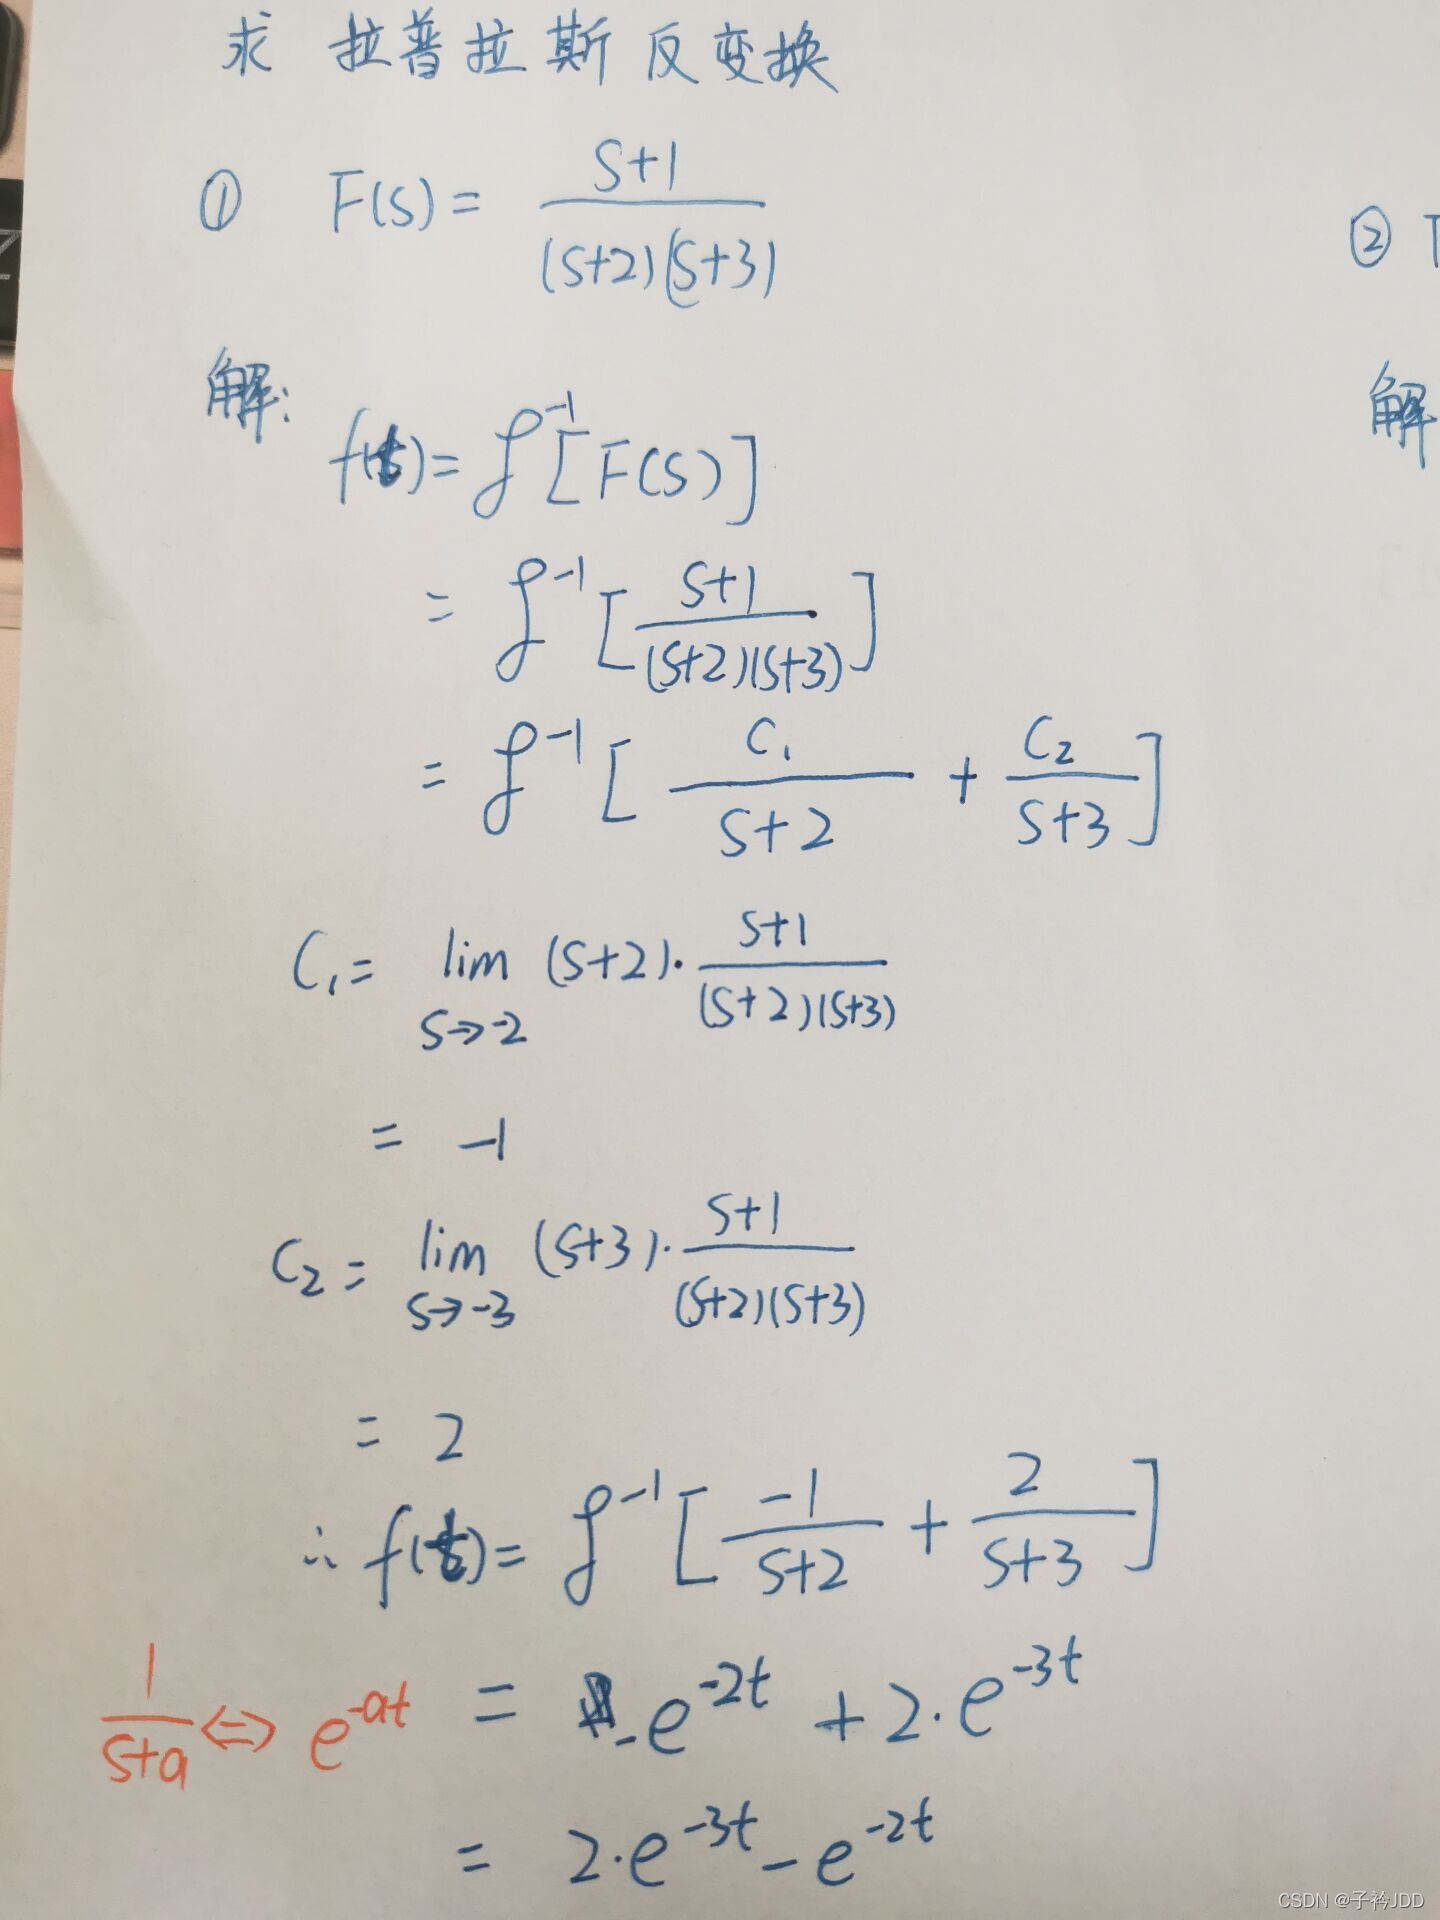 求 拉普拉斯反变换
① F(s) = \frac{s+1}{(s+2)(s+3)}
② 
解:
解
f(t) = ℒ^{-1}[F(s)]
= ℒ^{-1}[\frac{s+1}{(s+2)(s+3)}]
= ℒ^{-1}[\frac{C_1}{s+2} + \frac{C_2}{s+3}]
C_1 = \lim_{s→-2} (s+2)·\frac{s+1}{(s+2)(s+3)}
= -1
C_2 = \lim_{s→-3} (s+3)·\frac{s+1}{(s+2)(s+3)}
= 2
∴ f(t) = ℒ^{-1}[\frac{-1}{s+2} + \frac{2}{s+3}]
\frac{1}{s+a} ⇔ e^{-at}
= -e^{-2t} + 2·e^{-3t}
= 2·e^{-3t} - e^{-2t}
CSDN @子衿JDD